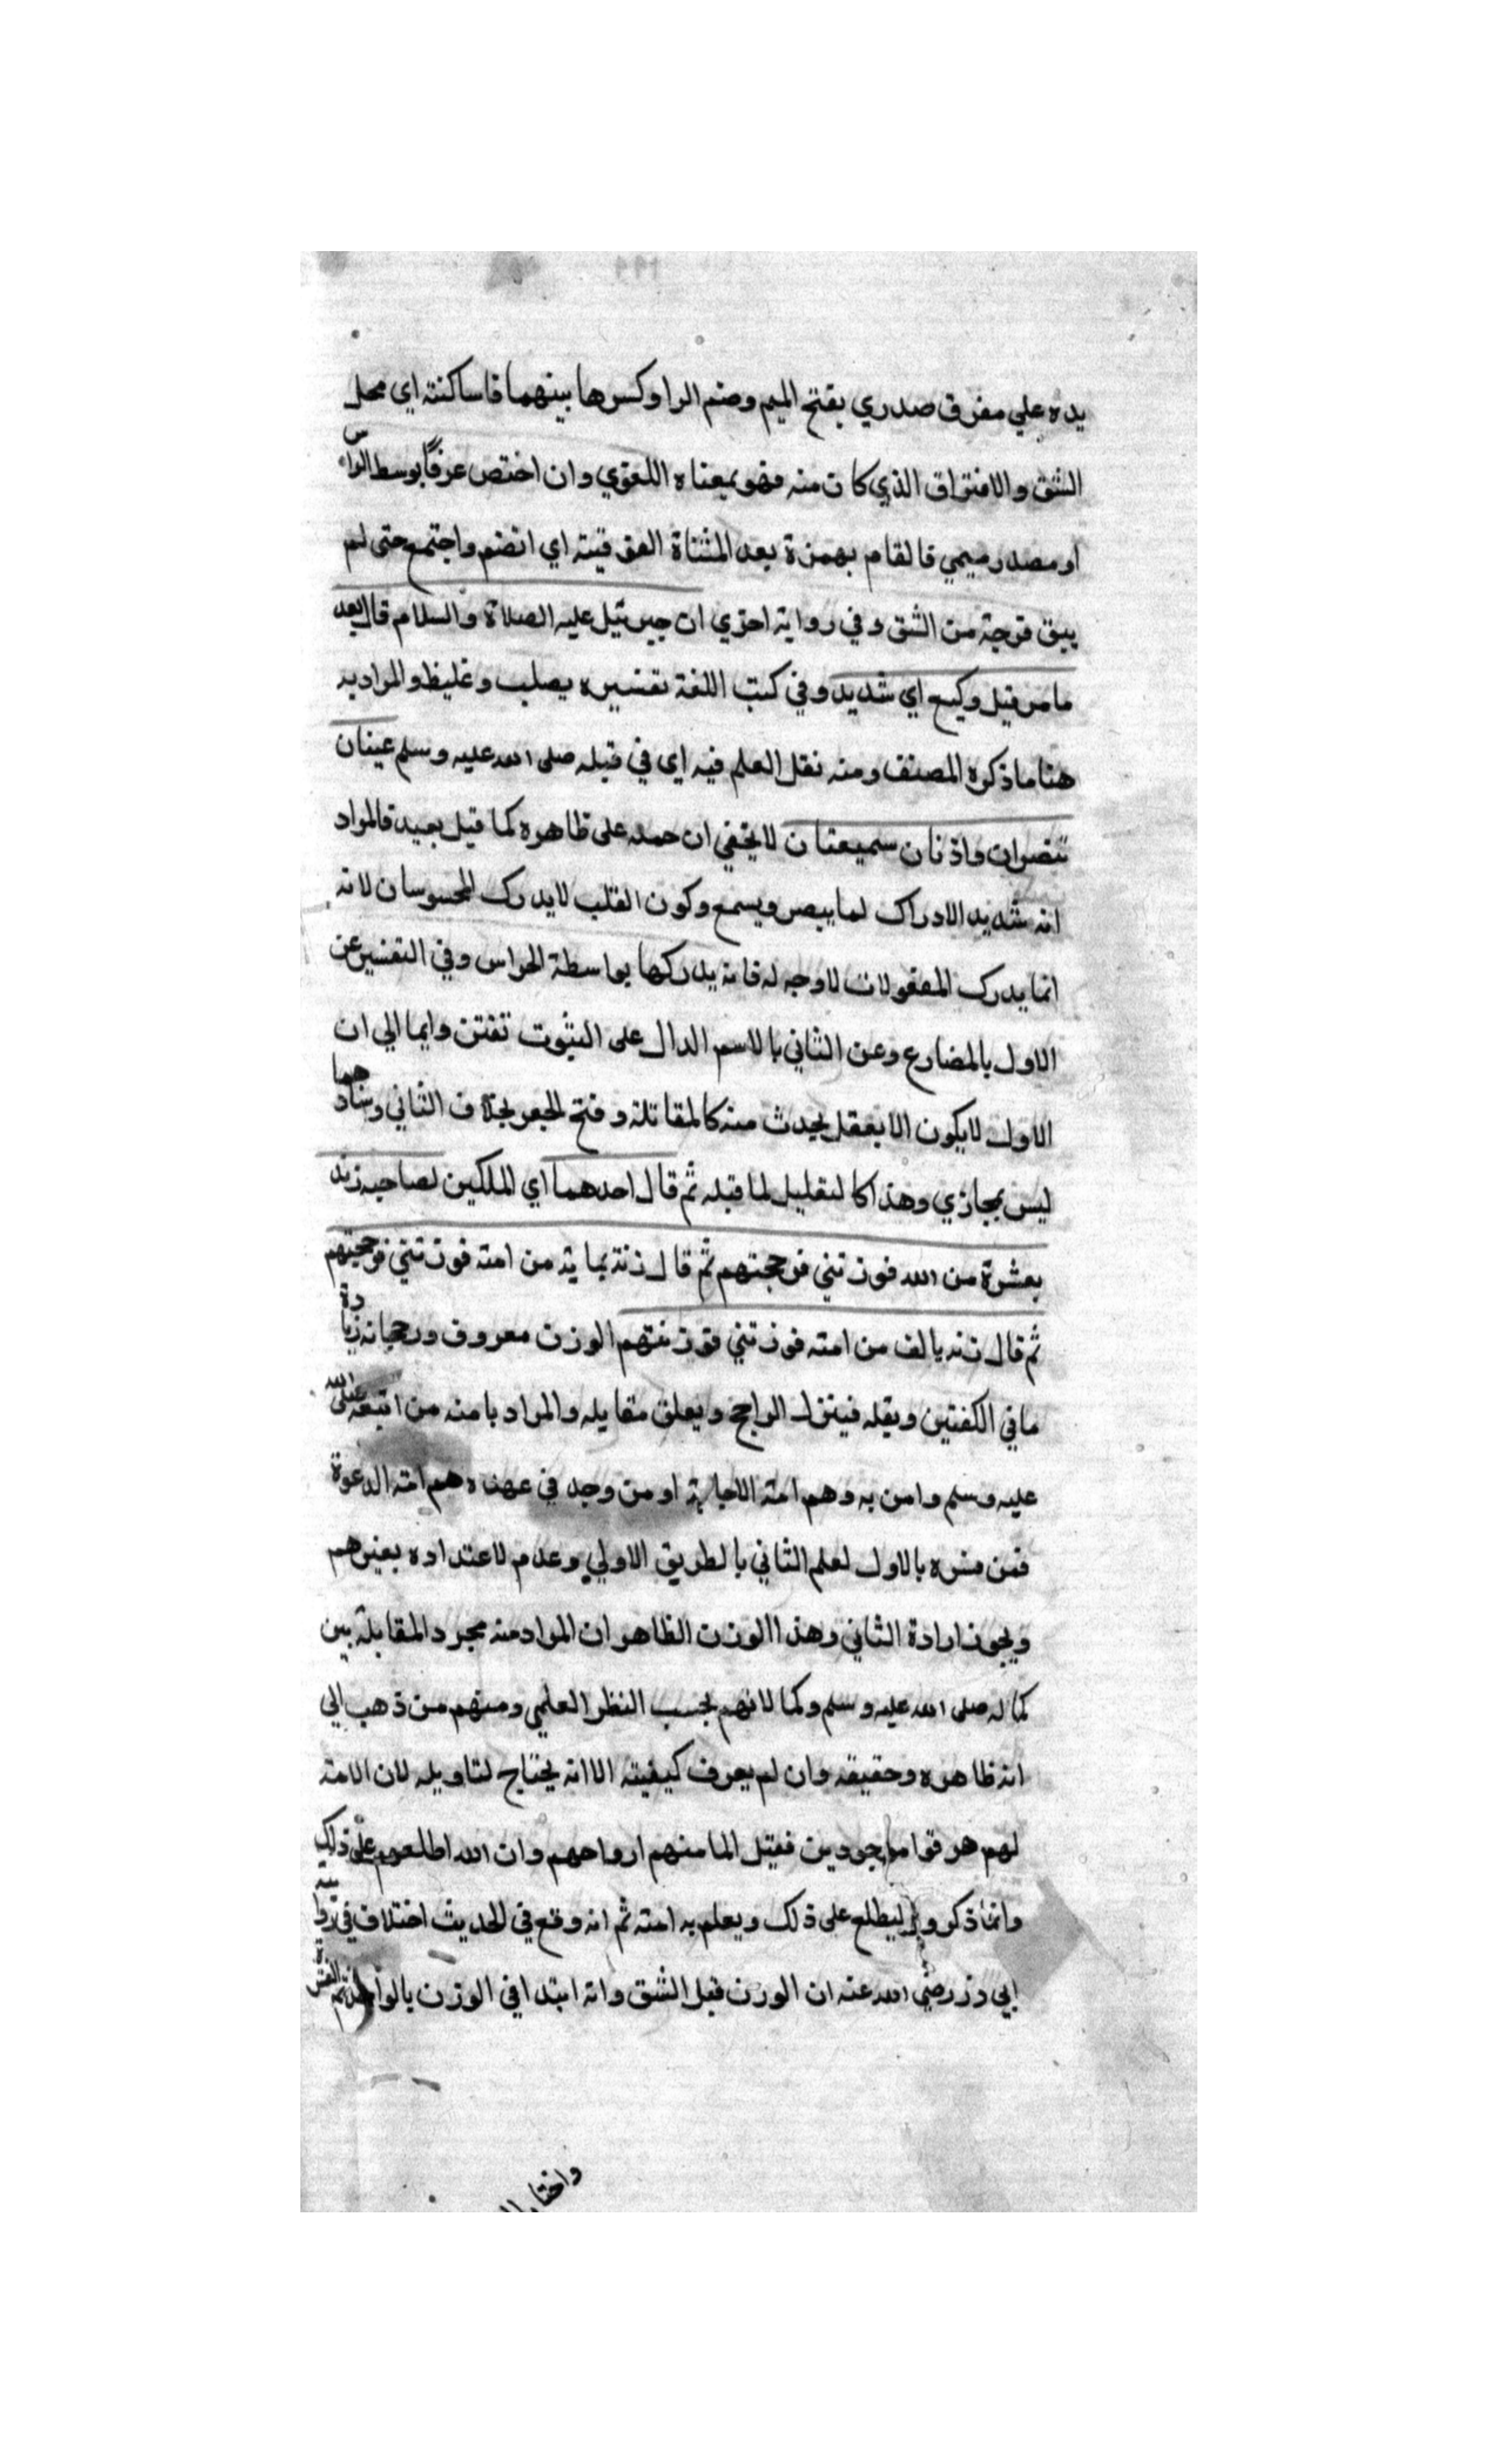 يده علي مفرق صدري بفتح الميم وضم الرا وكسرها بينهما فا ساكنة اي محل
الشق والافتراق الذي كان منه فهو بمعناه اللغوي وان اختص عرفاً بوسط الراس
او مصدر ميمي فالتام بهمزة بعد المثناة الفوقية اي انضم واجتمع حتى لم
يبق فرجة من الشق وفي رواية اخري ان جبرئيل عليه الصلاة والسلام قال بعد
ما مر قيل وكيع اي شديد وفي كتب اللغة تفسيره بصلب وغليظ والمراد به
هنا ما ذكره المصنف ومنه نقل العلم فيه اي في قبله صلى الله عليه وسلم عينان
تبصران واذنان سميعتان لا يخفي ان حمله على ظاهره كما قيل بعيد فالمراد
انه شديد الادراك لما يبصر ويسمع وكون القلب لا يدرك المحسوسان لانه
انما يدرك المعقولات لا وجه له فانه يدركها بواسطة الحواس وفي التفسير عن
الاول بالمضارع وعن الثاني بالاسم الدال على الثبوت تفنن وايما الي ان
الاول لا يكون الا بعقل يحدث منه كالمقابلة وفتح البصر بخلاف الثاني
ليس بمجازي وهذا كالتعليل لما قبله ثم قال احدهما اي الملكين لصاحبه زنه
بعشرة من الله فوزنني فرجحتهم ثم قال زنه بماية من امته فوزنني فرجحتهم
ثم قال زنه بالف من امته فوزنني فوزنتهم الوزن معروف ورجحانه زيادة
ما في الكفتين وبقله فينزل الراجح ويعلق مقابله والمراد بامته من اتبعه صلى الله
عليه وسلم وامن به وهم امة الاجابة او من وجد في عهده وهم امة الدعوة
فمن فسره بالاول لعلم الثاني بالطريق الاولي وعدم لاعتداده بغيرهم
ويجوز ارادة الثاني وهذا الوزن الظاهر ان المراد منه مجرد المقابلة بين
كماله صلى الله عليه وسلم وكمالاتهم بحسب النظر العلمي ومنهم من ذهب الي
انه ظاهره وحقيقه وان لم يعرف كيفيته الا انه يحتاج لتاويله لان الامة
لهم هر قوا موجودين فقيل المامنهم ارواحهم وان الله اطلعهم على ذلك
وانما ذكروه ليطلع على ذلك ويعلم به امته ثم انه وقع في الحديث اختلاف في رواية
ابي ذر رضي الله عنه ان الوزن قبل الشق وانه ابتدا في الوزن بالواحد ثم العشرة